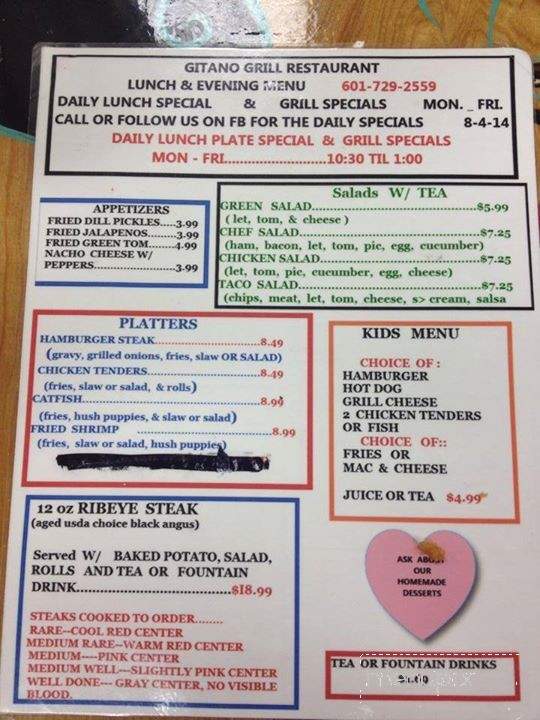 GITANO GRILL RESTAURANT
LUNCH & EVENING MENU 601-729-2559
DAILY LUNCH SPECIAL & GRILL SPECIALS MON. _ FRI.
CALL OR FOLLOW US ON FB FOR THE DAILY SPECIALS 8-4-14
DAILY LUNCH PLATE SPECIAL & GRILL SPECIALS
MON - FRI.........................10:30 TIL 1:00
APPETIZERS
FRIED DILL PICKLES.....3.99
FRIED JALAPENOS.........3.99
FRIED GREEN TOM.......4.99
NACHO CHEESE W/
PEPPERS......................3.99
Salads W/ TEA
GREEN SALAD.............................................$5.99
( let, tom, & cheese )
CHEF SALAD................................................$7.25
(ham, bacon, let, tom, pic, egg, cucumber)
CHICKEN SALAD...........................................$7.25
(let, tom, pic, cucumber, egg, cheese)
TACO SALAD................................................$7.25
(chips, meat, let, tom, cheese, s> cream, salsa
PLATTERS
HAMBURGER STEAK.........................8.49
(gravy, grilled onions, fries, slaw OR SALAD)
CHICKEN TENDERS...........................8.49
(fries, slaw or salad, & rolls)
CATFISH............................................8.99
(fries, hush puppies, & slaw or salad)
FRIED SHRIMP ................................8.99
(fries, slaw or salad, hush puppies)
KIDS MENU
CHOICE OF :
HAMBURGER
HOT DOG
GRILL CHEESE
2 CHICKEN TENDERS
OR FISH
CHOICE OF::
FRIES OR
MAC & CHEESE
JUICE OR TEA $4.99
12 oz RIBEYE STEAK
(aged usda choice black angus)
Served W/ BAKED POTATO, SALAD,
ROLLS AND TEA OR FOUNTAIN
DRINK...................................$18.99
STEAKS COOKED TO ORDER........
RARE--COOL RED CENTER
MEDIUM RARE--WARM RED CENTER
MEDIUM----PINK CENTER
MEDIUM WELL---SLIGHTLY PINK CENTER
WELL DONE--- GRAY CENTER, NO VISIBLE
BLOOD.
ASK
OUR
HOMEMADE
DESSERTS
TEA OR FOUNTAIN DRINKS